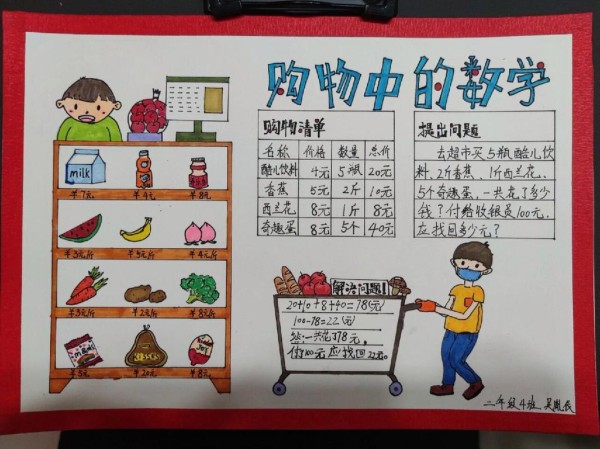 购物中的数学
购物清单
名称 价格 数量 总价
酷儿饮料 4元 5瓶 20元
香蕉 5元 2斤 10元
西兰花 8元 1斤 8元
奇趣蛋 8元 5个 40元
提出问题
去超市买5瓶酷儿饮
料、2斤香蕉、1斤西兰花、
5个奇趣蛋,一共花了多少
钱?付给收银员100元,
应找回多少元?
milk
¥7元 ¥4元 ¥8元
¥3元/斤 ¥5元/斤 ¥4元/斤
¥3元/斤 ¥2元/斤 ¥8元/斤
¥5元 ¥20元 ¥8元
解决问题!
20+10+8+40=78(元)
100-78=22(元)
答:一共花了78元,
付100元应找回22元。
二年级4班